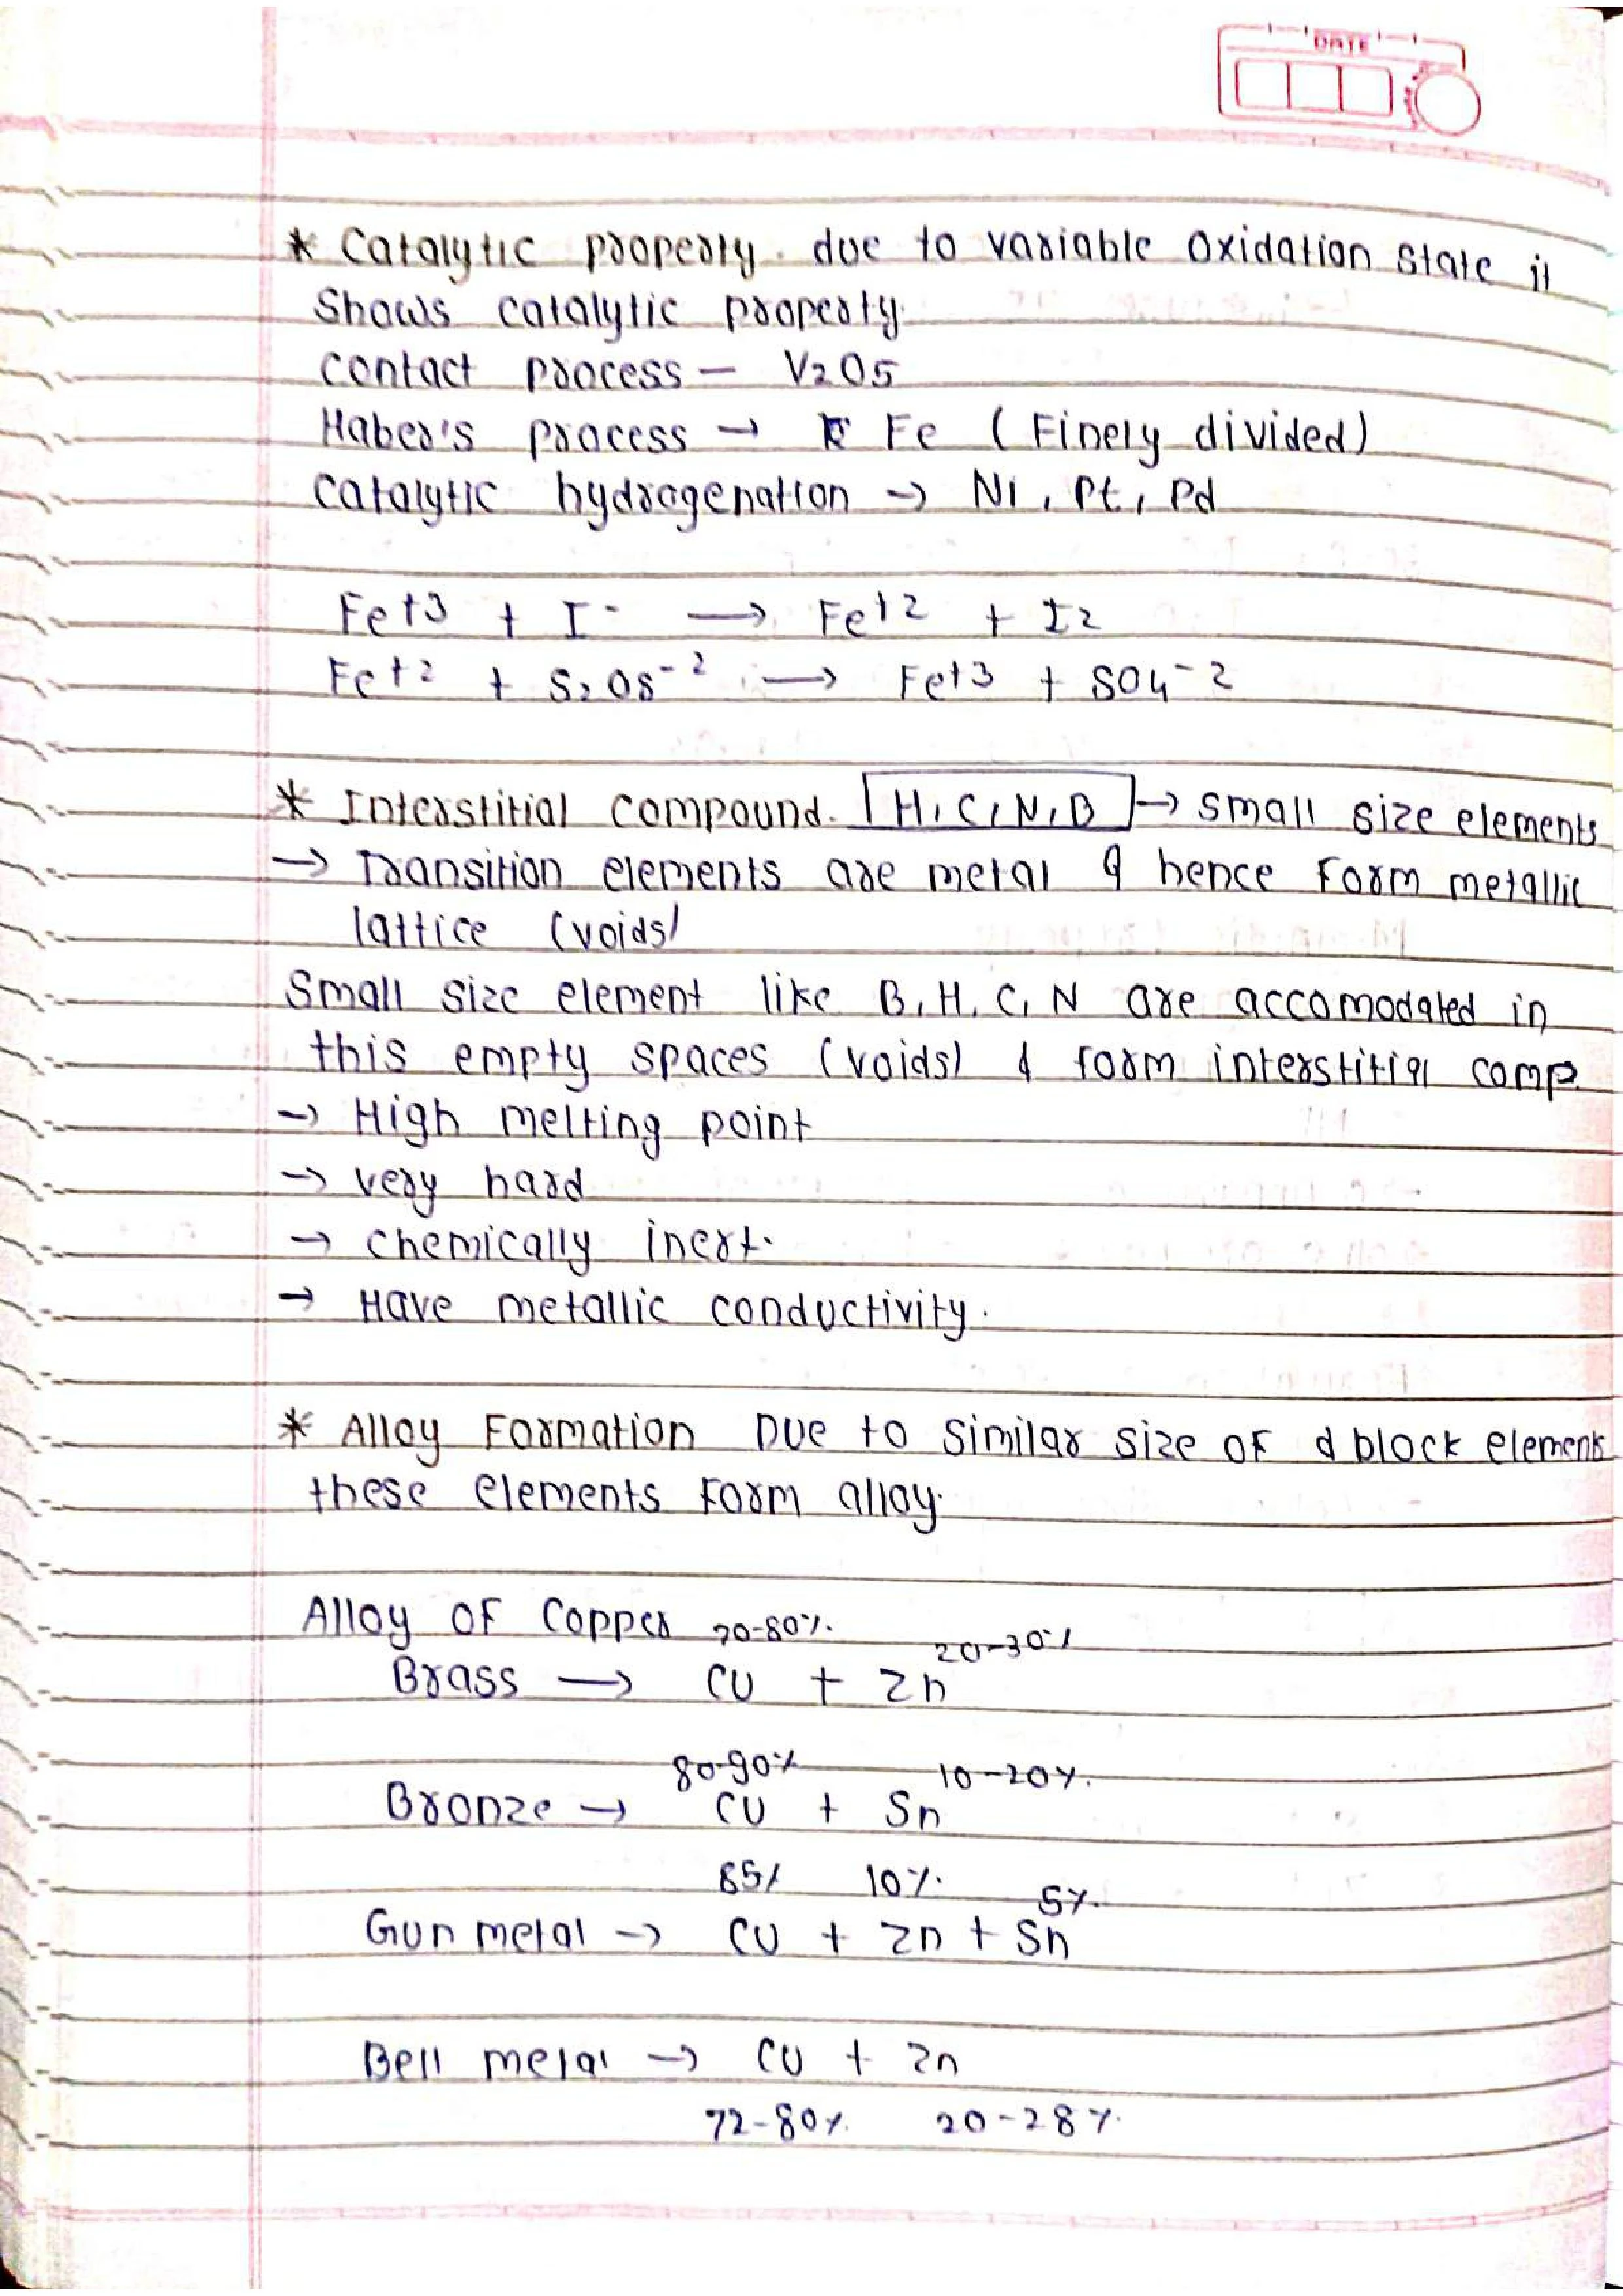 DATE
* Catalytic property. due to variable oxidation state it
shows catalytic property.
contact process — V2O5
Haber's process → Fe (Finely divided)
catalytic hydrogenation → Ni, Pt, Pd
Fe+3 + I- → Fe+2 + I2
Fe+2 + S2O8-2 → Fe+3 + SO4-2
* Interstitial compound. H, C, N, B → small size elements
→ Transition elements are metal & hence form metallic
lattice (voids)
Small size element like B, H, C, N are accomodated in
this empty spaces (voids) & form interstitial comp.
→ High melting point
→ very hard
→ chemically inert.
→ Have metallic conductivity.
* Alloy Formation Due to similar size of d block elements
these elements form alloy.
Alloy of Copper 70-80% 20-30%
Brass → Cu + Zn
80-90% 10-20%
Bronze → Cu + Sn
85% 10% 5%
Gun metal → Cu + Zn + Sn
Bell metal → Cu + Zn
72-80% 20-28%